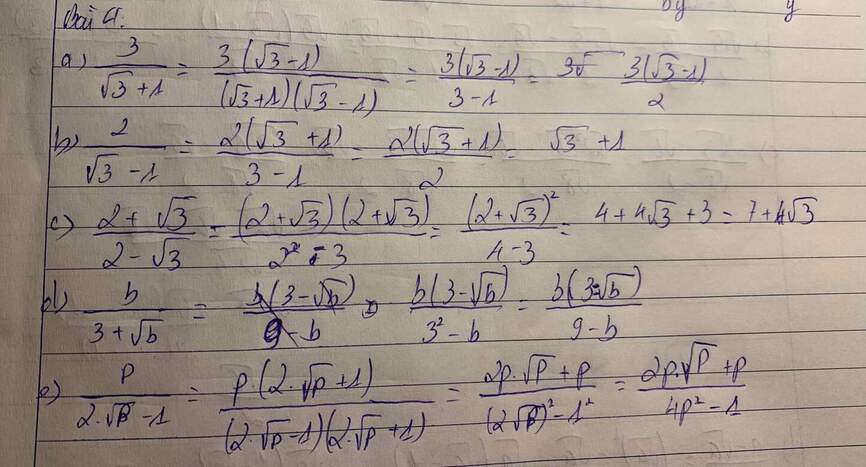 by y
Bài 4.
a) 3/(√3+1) = 3(√3-1)/((√3+1)(√3-1)) = 3(√3-1)/(3-1) = 3√ 3(√3-1)/2
b) 2/(√3-1) = 2(√3+1)/(3-1) = 2(√3+1)/2 = √3+1
c) (2+√3)/(2-√3) = (2+√3)(2+√3)/(2²-3) = (2+√3)²/(4-3) = 4+4√3+3 = 7+4√3
d) b/(3+√b) = b(3-√b)/(9-b) = b(3-√b)/(3²-b) = b(3-√b)/(9-b)
e) p/(2.√p-1) = p(2.√p+1)/((2.√p-1)(2.√p+1)) = (2p.√p+p)/((2√p)²-1²) = (2p.√p+p)/(4p²-1)